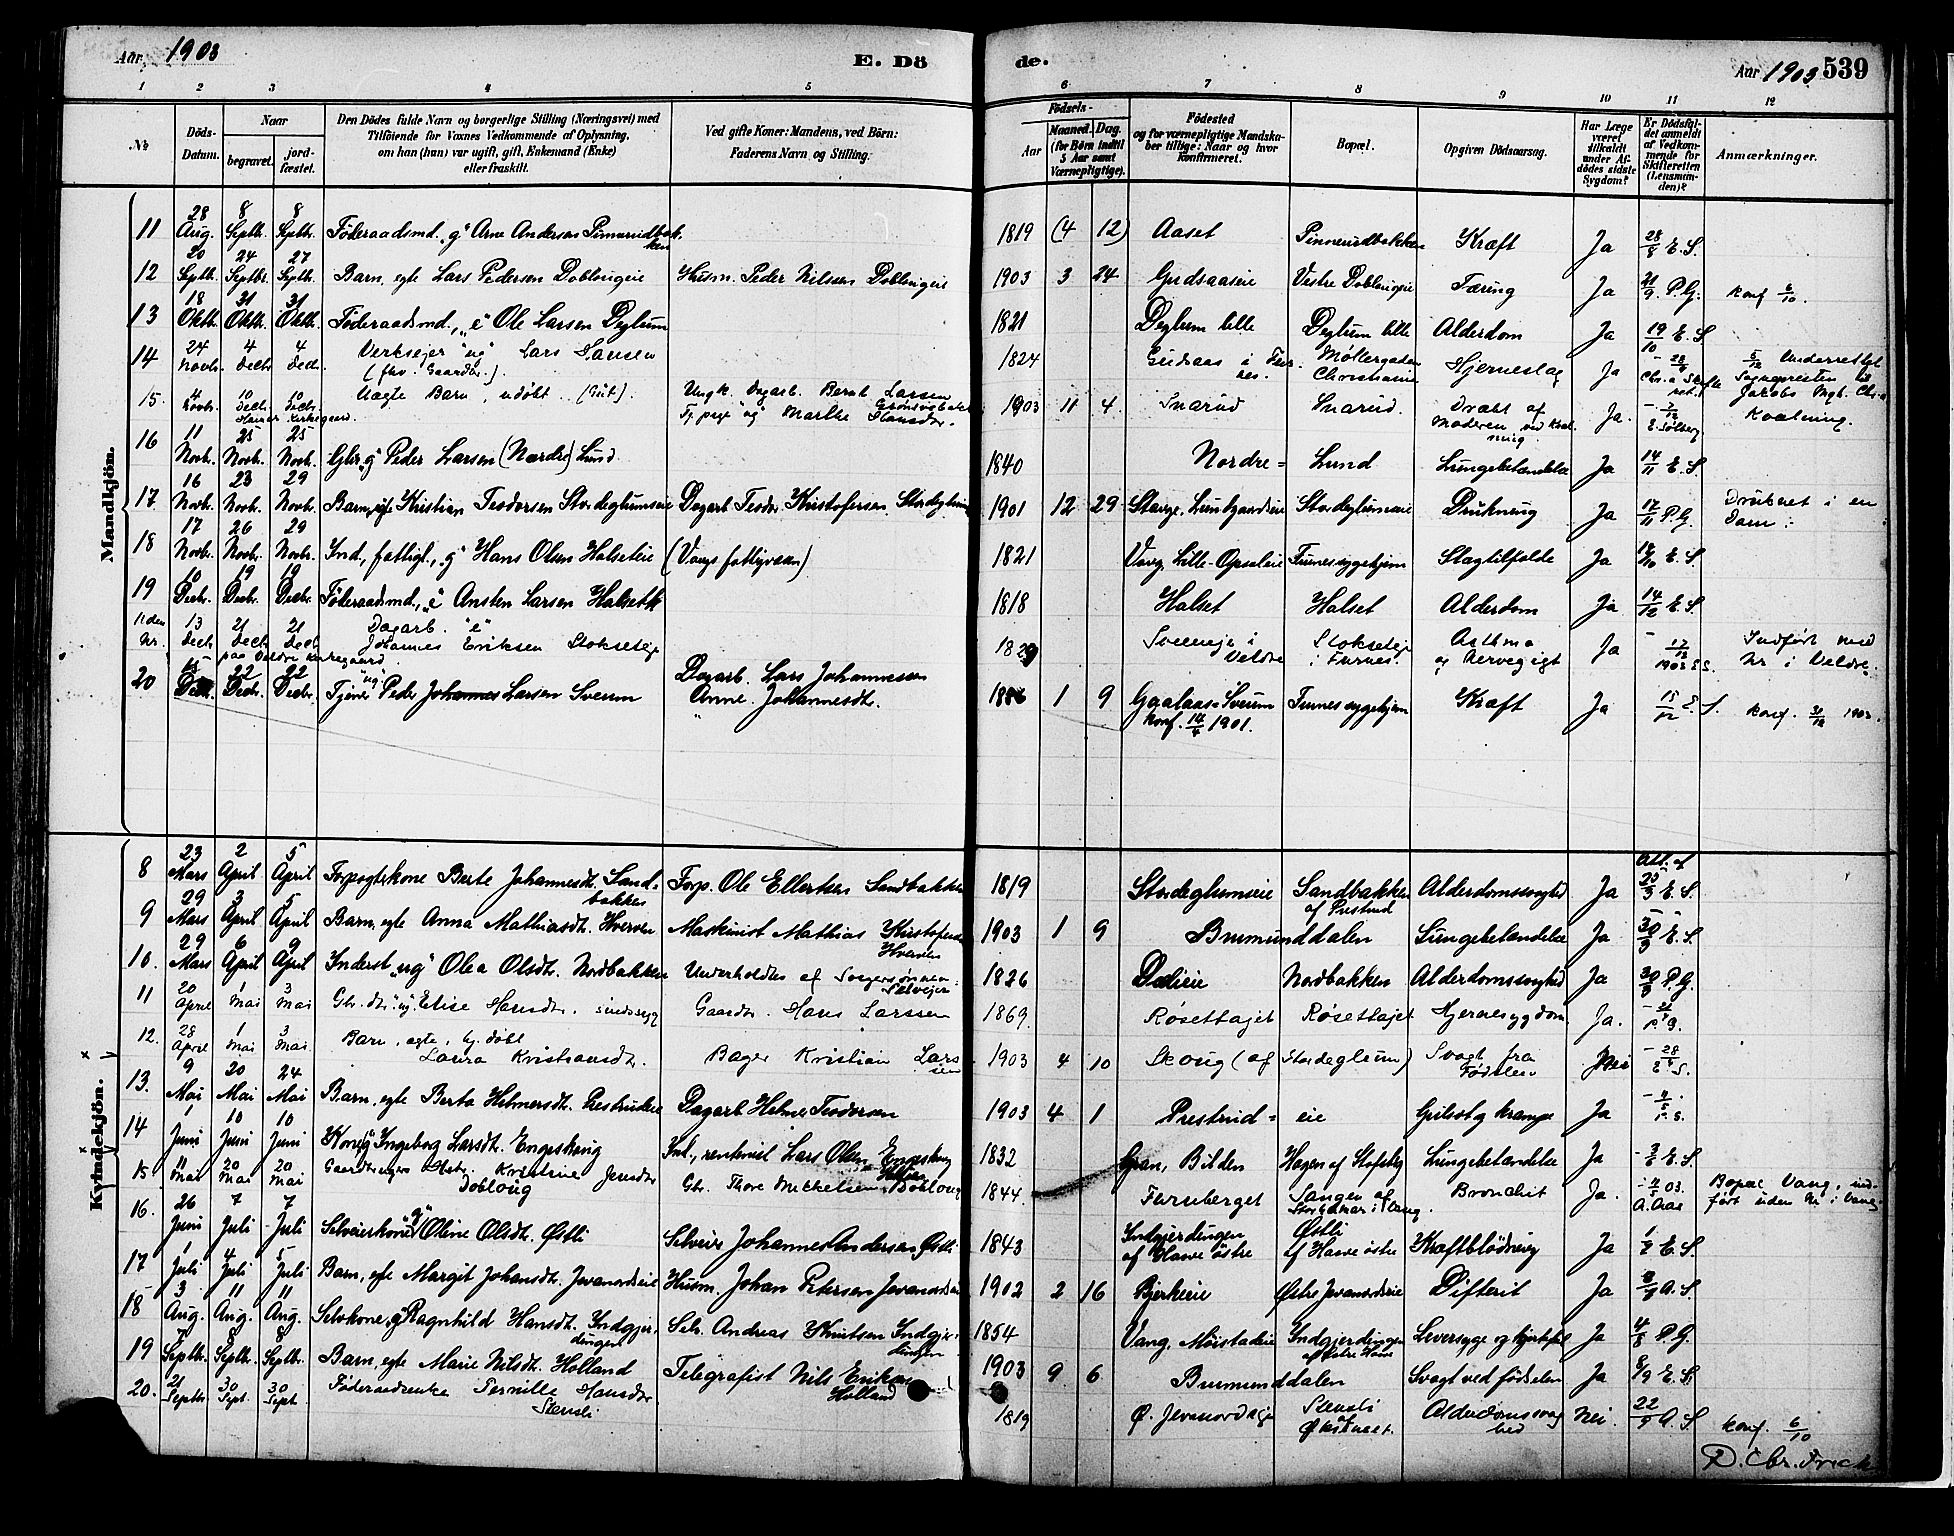 Aar 1903 E. Dö
de. Aar 1903 539
1 2 3 4 5 6 7 8 9 10 11 12
No Döds-Datum. Naar begravet. jordfæstet.
Den Dödes fulde Navn og borgerlige Stilling (Næringsvei) med
Tilföiende for Voxnes Vedkommende af Oplysning,
om han (hun) var ugift, gift, Enkemand (Enke)
eller fraskilt.
Ved gifte Koner: Mandens, ved Börn:
Faderens Navn og Stilling.
Födsels-
Aar Maaned. Dag.
(for Börn indtil
5 Aar samt
Værnepligtige).
Födested
og for værnepligtige Mandska-
ber tillige: Naar og hvor
konfirmeret.
Bopæl.
Opgiven Dödsaarsag.
Har Læge
været
tilkaldt
under Af-
dödes sidste
Sygdom?
Er Dödsfal-
det anmeldt
af Vedkom-
mende for
Skifteretten
(Lensman-
den)?
Anmærkninger.
Mandkjön.
11 28 Aug. 8 Septb. 8 Septb. Föderaadsmd. "g" Arne Andersen Pinnerudbakken 1819 (4 12) Aaset Pinnerudbakken Kræft Ja 28/8 E.S.
12 20 Septb. 24 Septbr. 27 Septb. Barn, egte Lars Pedersen Doblougeie Husm. Peder Nilssen Doblougeie 1903 3 24 Gudsaaseie Vestre Doblougeie Tæring Ja 21/9 P.G. Konf 6/10.
13 18 Oktb. 31 Oktb. 31 Oktb. Föderaadsmd., "e" Ole Larsen Deglum 1821 Deglum lille Deglum lille Alderdom Ja 19/10 E.S
14 24 Novb. 4 Decb. 4 Decb. Verksejer "ug" Lars Hansen (fhv. Gaardbr.) 1824 Gudsaas i Furnes. Möllergaden Christiania Hjerneslag Ja 5/12 Underrettet Sognepresten til Jakobs Mgh. Chr.a
15. 4 Novb. 10 Decb. 10 Decb. Hamar Kirkegaard Uægte Barn, udöbt. Ungk. Dagarb. Bernt Larssen Tj.pige "ug" Marthe Hansdr. 1903 11 4 Snarud Snarud. Dræbt af Moderen ved Kvælning. Ja. E. Sølberg Kvælning.
16 11 Novb. 25 Novb. 25 Novb. Gbr. "g" Peder Larsen (Nordre) Lund 1840 Nordre = Lund Lungebetændelse Ja 14/11 E.S.
17. 16 Novb. 23 Novb. 29 Novb. Barn, egte Kristian Teodorsen Stordeglumseie Dagarb. Teodor Kristofersen Stordeglum 1901 12 29 Stange, Lundgaardseie Stordeglumeie Drukning Ja 17/11 P.G. Druknet i en Dam.
18 17 Novbr. 26 Novb. 29 Novb. Ind, fattigl., "g" Hans Olsen Halseteie (Vangs fattigvæsen) 1821 Vang, Lille-Opsaleie Furnes sygehjem Slagtilfælde Ja E.S.
19 10 Decbr. 19 Decbr. 19 Decbr. Föderaadsmd., "e" Ansten Larsen Halset 1818 Halset Halset Alderdom Ja 14/12 E.S.
Uden Nr. 13 Decb. 21 Decb. 21 Decb. paa Veldre Kirkegaard. Dagarb. "e" Johannes Eriksen Stokseteje 1829 Sveeneje i Veldre Stokseteje i Furnes. Asthma og Nervegigt Ja 17/12 1903 E.S. Indført med Nr i Veldre.
20 15 Decb. 22 Decbr. 22 Decbr. Tjener "ug" Peder Johannes Larsen Sveum Dagarb. Lars Johannessen Anne Johannesdt. 1886 1 9 Gaalaas=Sveum Konf. 14/4 1901. Furnes sygehjem Kræft Ja 15/12 E.S. Konf. 31/12 1903.
Kvindekjön.
8 23 Mars 2 April 5 April Forpagterkone Berte Johannesdt. Sandbakken Forp. Ole Ellertsen Sandbakken 1819 Stordeglumeie Sandbakken af Prestrud Alderdomssvaghed Ja Att. af 25/3 E.S.
9 29 Mars 3 April 5 April Barn, egte Anna Mathiasdt. Hverven Maskinist Mathias Kristofersen Hverven 1903 1 9 Brumunddalen Lungebetændelse Ja 30/3 E.S.
10. 29 Mars 6 April 9 April Inderst "ug" Olea Olsdt. Nordbakken Underholdtes af Svogersønnen Selvejer 1826 Dælieie Nordbakken Alderdomssvaghed Ja 30/3 P.G.
11 20 April 1 Mai 3 Mai Gbr.dtr "ug" Elise Hansdtr. sindssyg Gaardbr. Hans Larssen 1869 Røsettaget Røsettajet Hjernesygdom. Ja. P.G.
12. 28 April 1 Mai 3 Mai. Barn, ægte, hj. döbt Laura Kristiansdt. Bager Kristian Larssen 1903 4 10 Skoug (af Stordeglum) Svagt fra Fødselen Nei 28/4 E.S.
13. 9 Mai 20 Mai 24 Mai Barn, egte Berta Helmersdt. Prestrudeie Dagarb Helmer Teodorsen 1903 4 1 Prestrud = eie Gulsot og krampe Ja
14 1 Juni 10 Juni 10 Juni Kone "g" Ingeborg Larsdt. Engeskaug Ind., rentenist Lars Olsen Engeskaug 1832 Gran, Bilden Hagen af Stofsberg Lungebetændelse Ja E.S.
15. 11 Mai 20 Mai 20 Mai Kristine Jensdtr Dobloug Gbr. Thore Mikkelsen Dobloug 1844. Furuberget Sangen af Storhamar i Vang. Bronchit Ja. A. Aas Bopæl Vang, indført uden Nr. i Vang.
16. 26 Juni 7 Juli 7 Juli Selveierkone "g" Oline Olsdt. Østli Selveier Johannes Andersen Østli 1843 Indgjerdingen af Hawe østre Østli af Hawe østre Kræftblødning Ja 1/7 E.S.
17 1 Juli 4 Juli 5 Juli Barn, egte Margit Johansdt. Jevanordseie Husm. Johan Petersen Jevanordseie 1902 2 16 Bjerkeeie Østre Jevanordseie Difterit Ja A.S.
18 3 Aug. 11 Aug. 11 Aug. Selvkone "g" Ragnhild Hansdt. Indgjerdingen Selv. Andreas Knutsen Indgjerdingen 1854 Vang, Mustadeie Indgjerdingen Leversyge og hjertefeil Ja 4/8 P.G.
19 7 Septb. 8 Septb. 8 Septb. Barn, egte Marie Nilsdt. Holland Telegrafist Nils Eriksen Holland 1903 9 6 Brumunddalen Svagt ved födselen Ja 8/9 E.S.
20. 21 Septb. 30 Sept. 30 Sept. Föderaadsenke Pernille Hansdtr Stensli 1819 Ø. Jevanordseje Stensli Alderdomssvaghed Nei. 22/9 A.S. Konf. 6/10
D. Chr. Frich